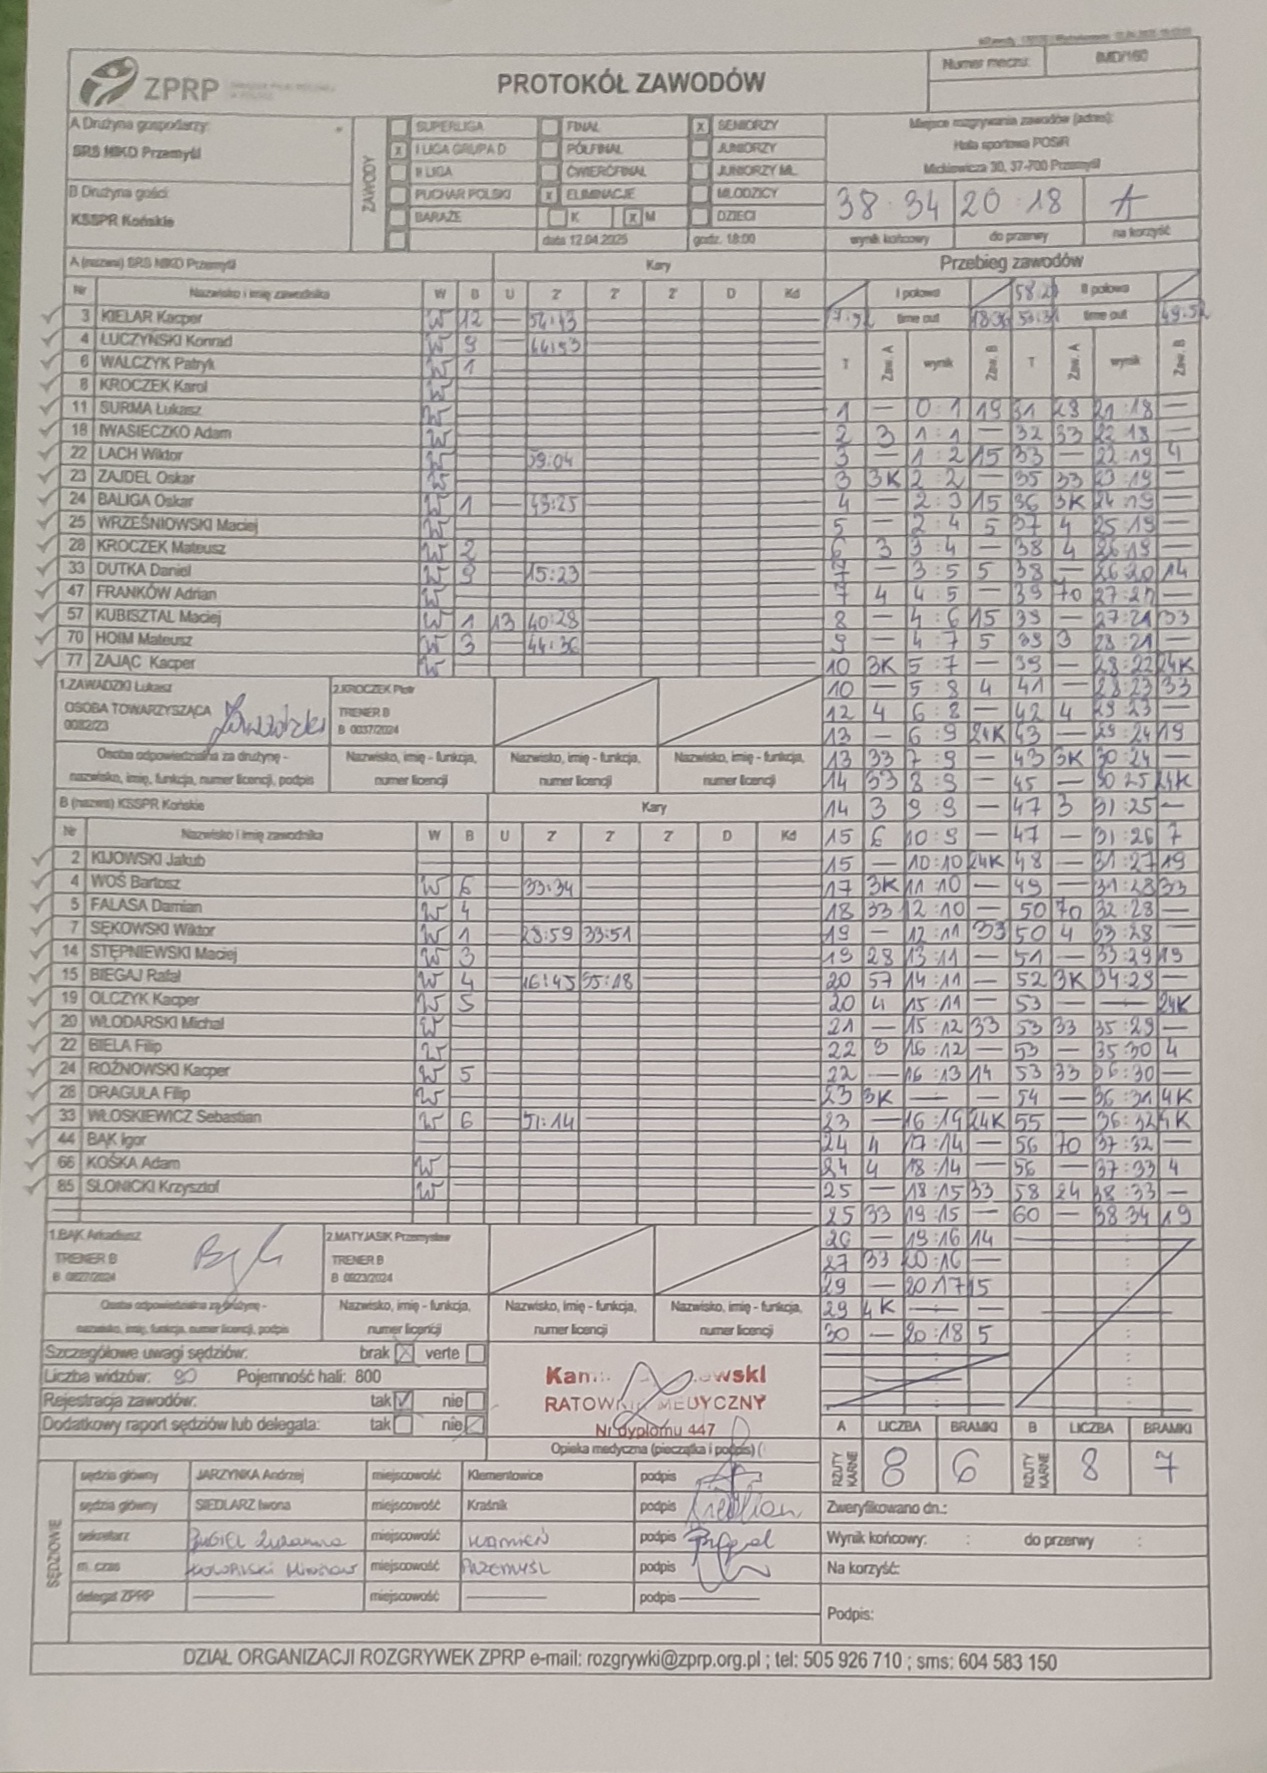 Numer meczu: IMD/160
ZPRP
PROTOKÓŁ ZAWODÓW
A Drużyna gospodarzy:
SRS NIKD Przemyśl
B Drużyna gości:
KSSPR Końskie
ZAWODY
SUPERLIGA FINAŁ x SENIORZY
x I LIGA GRUPA D PÓŁFINAŁ JUNIORZY
II LIGA ĆWIERĆFINAŁ JUNIORZY MŁ.
PUCHAR POLSKI x ELIMINACJE MŁODZICY
BARAŻE K x M DZIECI
data 12.04.2025 godz. 18:00
Miejsce rozgrywania zawodów (adres):
Hala sportowa POSiR
Mickiewicza 30, 37-700 Przemyśl
38:34 20:18 A
wynik końcowy do przerwy na korzyść
A (nazwa) SRS NIKD Przemyśl Kary
Nr Nazwisko i imię zawodnika W B U 2' 2' 2' D Kd
3 KIELAR Kacper W 12 — 54:43
4 ŁUCZYŃSKI Konrad W 9 — 44:53
6 WALCZYK Patryk W 1
8 KROCZEK Karol W
11 SURMA Łukasz W
18 IWASIECZKO Adam W
22 LACH Wiktor W 59:04
23 ZAJDEL Oskar W
24 BALIGA Oskar W 1 — 43:25
25 WRZEŚNIOWSKI Maciej W
28 KROCZEK Mateusz W 2
33 DUTKA Daniel W 9 — 15:23
47 FRANKÓW Adrian W
57 KUBISZTAL Maciej W 1 13 40:28
70 HOIM Mateusz W 3 — 44:36
77 ZAJĄC Kacper W
1.ZAWADZKI Łukasz
OSOBA TOWARZYSZĄCA
0082/23
2.KROCZEK Piotr
TRENER B
B 0037/2024
Osoba odpowiedzialna za drużynę -
nazwisko, imię, funkcja, numer licencji, podpis
Nazwisko, imię - funkcja, numer licencji
Nazwisko, imię - funkcja, numer licencji
Nazwisko, imię - funkcja, numer licencji
B (nazwa) KSSPR Końskie Kary
Nr Nazwisko i imię zawodnika W B U 2' 2' 2' D Kd
2 KIJOWSKI Jakub
4 WOŚ Bartosz W 6 — 33:34
5 FALASA Damian W 4
7 SĘKOWSKI Wiktor W 1 — 28:59 33:51
14 STĘPNIEWSKI Maciej W 3
15 BIEGAJ Rafał W 4 — 16:45 55:18
19 OLCZYK Kacper W 5
20 WŁODARSKI Michał W
22 BIELA Filip W
24 ROŻNOWSKI Kacper W 5
26 DRAGUŁA Filip W
33 WŁOSKIEWICZ Sebastian W 6 — 51:14
44 BĄK Igor
66 KOŚKA Adam W
85 SŁONICKI Krzysztof W
1.BĄK Arkadiusz
TRENER B
B 0827/2024
2.MATYJASIK Przemysław
TRENER B
B 0923/2024
Osoba odpowiedzialna za drużynę -
nazwisko, imię, funkcja, numer licencji, podpis
Nazwisko, imię - funkcja, numer licencji
Nazwisko, imię - funkcja, numer licencji
Nazwisko, imię - funkcja, numer licencji
Szczegółowe uwagi sędziów: brak verte
Liczba widzów: Pojemność hali: 800
Rejestracja zawodów: tak nie
Dodatkowy raport sędziów lub delegata: tak nie
RATOWNIK MEDYCZNY
Nr dyplomu 447
Opieka medyczna (pieczątka i podpis)
Przebieg zawodów
I połowa II połowa
time out time out 49:52
T Zaw. A wynik Zaw. B T Zaw. A wynik Zaw. B
1 — 0:1 19 31 28 21:18 —
2 3 1:1 — 32 33 22:18 —
3 — 1:2 15 33 — 22:19 4
3 3K 2:2 — 35 33 23:19 —
4 — 2:3 15 36 3K 24:19 —
5 — 2:4 5 37 4 25:19 —
6 3 3:4 — 38 4 26:19 —
7 — 3:5 5 38 — 26:20 14
7 4 4:5 — 39 70 27:20 —
8 — 4:6 15 39 — 27:21 33
9 — 4:7 5 39 3 28:21 —
10 3K 5:7 — 39 — 28:22 24K
10 — 5:8 4 41 — 28:23 33
12 4 6:8 — 42 4 29:23 —
13 — 6:9 24K 43 — 29:24 19
13 33 7:9 — 43 3K 30:24 —
14 33 8:9 — 45 — 30:25 24K
14 3 9:9 — 47 3 31:25 —
15 6 10:9 — 47 — 31:26 7
15 — 10:10 24K 48 — 31:27 19
17 3K 11:10 — 49 — 31:28 33
18 33 12:10 — 50 70 32:28 —
19 — 12:11 33 50 4 33:28 —
19 28 13:11 — 51 — 33:29 19
20 57 14:11 — 52 3K 34:29 —
20 4 15:11 — 53 — — 24K
21 — 15:12 33 53 33 35:29 —
22 3 16:12 — 53 — 35:30 4
22 — 16:13 14 53 33 36:30 —
23 3K — — 54 — 36:31 4K
23 — 16:14 24K 55 — 36:32 4K
24 4 17:14 — 56 70 37:32 —
24 4 18:14 — 56 — 37:33 4
25 — 18:15 33 58 24 38:33 —
25 33 19:15 — 60 — 38:34 19
26 — 19:16 14
27 33 20:16 —
29 — 20:17 15
29 4K — —
30 — 20:18 5
A LICZBA BRAMKI B LICZBA BRAMKI
RZUTY KARNE 8 6 RZUTY KARNE 8 7
SĘDZIOWIE
sędzia główny JARZYNKA Andrzej miejscowość Klementowice podpis
sędzia główny SIEDLARZ Iwona miejscowość Kraśnik podpis
sekretarz miejscowość KAMIEŃ podpis
m. czas miejscowość PRZEMYŚL podpis
delegat ZPRP — miejscowość — podpis —
Zweryfikowano dn.:
Wynik końcowy: : do przerwy :
Na korzyść:
Podpis:
DZIAŁ ORGANIZACJI ROZGRYWEK ZPRP e-mail: rozgrywki@zprp.org.pl ; tel: 505 926 710 ; sms: 604 583 150